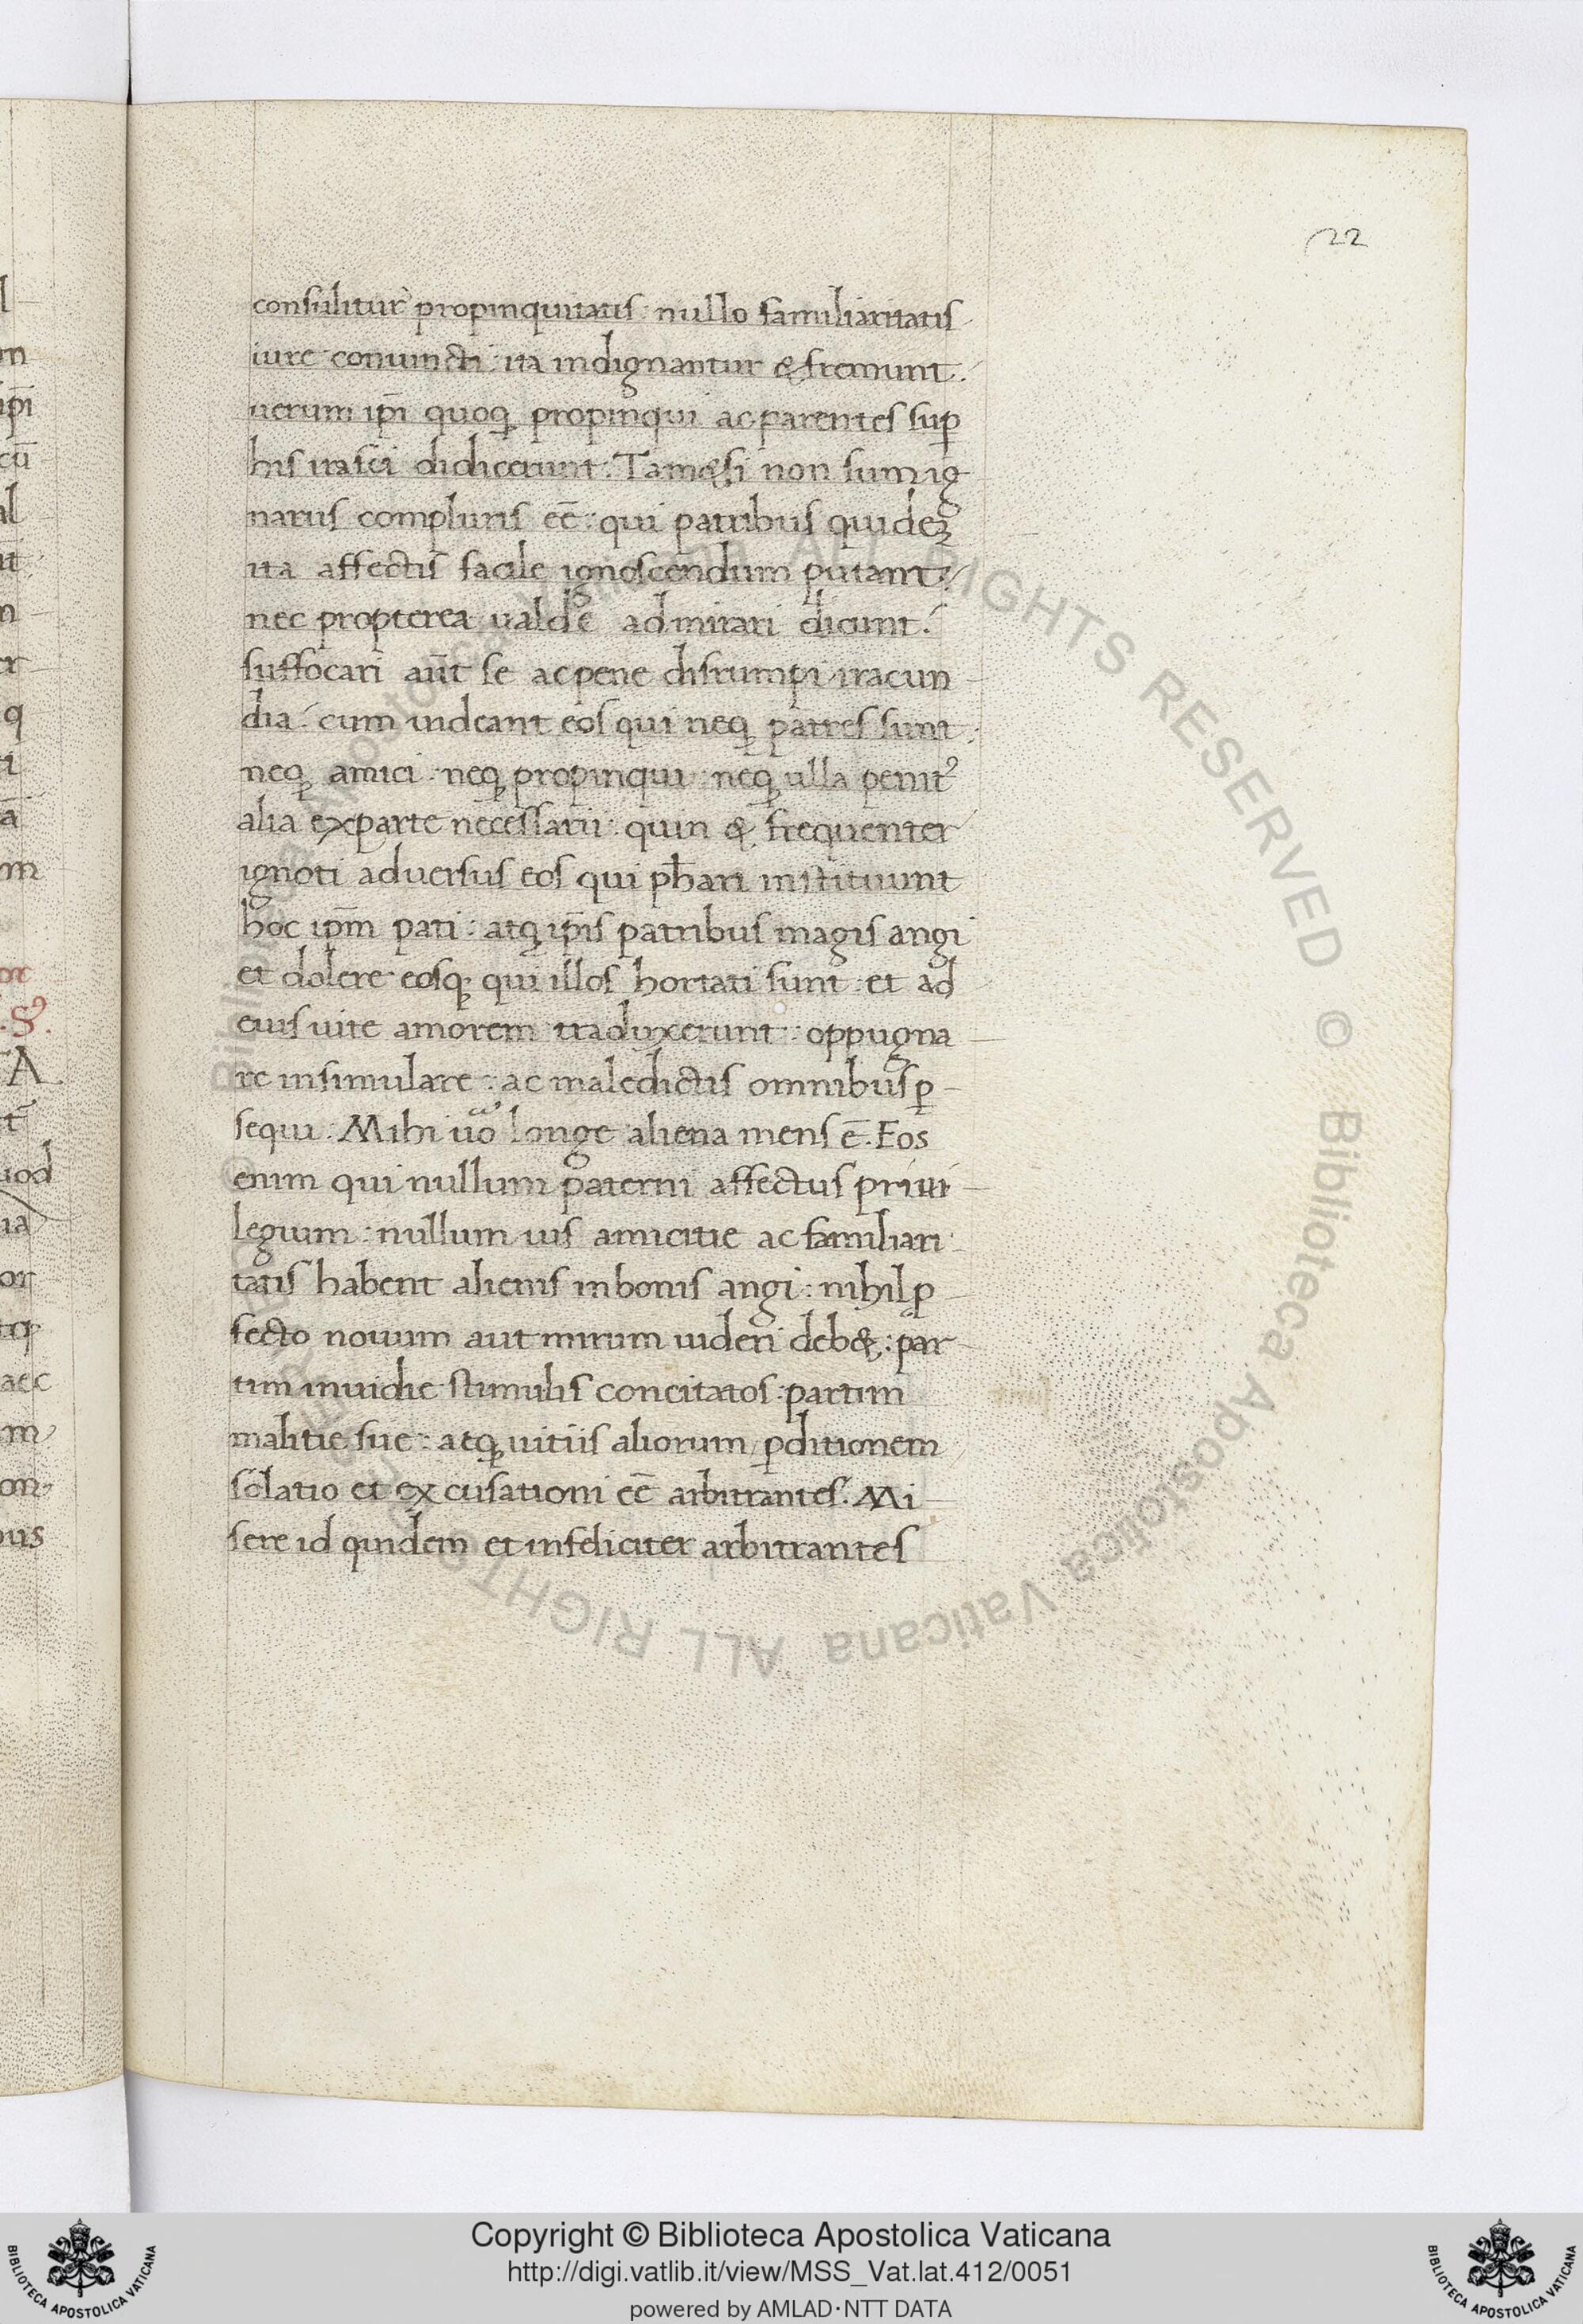 22
consulitur propinquitatis: nullo familiaritatis
iure conuincti: ita indignantur & fremunt.
uerum ip̄i quoq; propinqui ac parentes suꝑ
his irasci didicerunt. Tametsi non sum ig
narus compluris eē: qui patribus quideꝫ
ita affectis facile ignoscendum putant:
nec propterea ualde admirari dicunt:
suffocari aūt se ac pene disrumpi iracun
dia: cum uideant eos qui neq; patres sunt:
neq; amici: neq; propinqui: neq; ulla penitꝰ
alia ex parte necessarii: quin & frequenter
ignoti aduersus eos qui ph̄ari instituunt
hoc ip̄m pati: atq; ip̄is patribus magis angi
et dolere eosq; qui illos hortati sunt: et ad
eius uite amorem traduxerunt: oppugna
re insimulare: ac maledictis omnibus ꝑ
sequi. Mihi uo longe aliena mens ē. Eos
enim qui nullum paterni affectus priui
legium: nullum ius amicitie ac familiari
tatis habent alienis in bonis angi: nihil ꝓ
fecto nouum aut mirum uideri deb&: par
tim inuidie stimulis concitatos: partim
malitie sue: atq; uitiis aliorum ꝑditionem
solatio et excusationi eē arbitrantes. Mi
sere id quidem et infeliciter arbitrantes
© Biblioteca Apostolica Vaticana ALL RIGHTS RESERVED
Copyright © Biblioteca Apostolica Vaticana
http://digi.vatlib.it/view/MSS_Vat.lat.412/0051
powered by AMLAD·NTT DATA
BIBLIOTECA APOSTOLICA VATICANA
BIBLIOTECA APOSTOLICA VATICANA